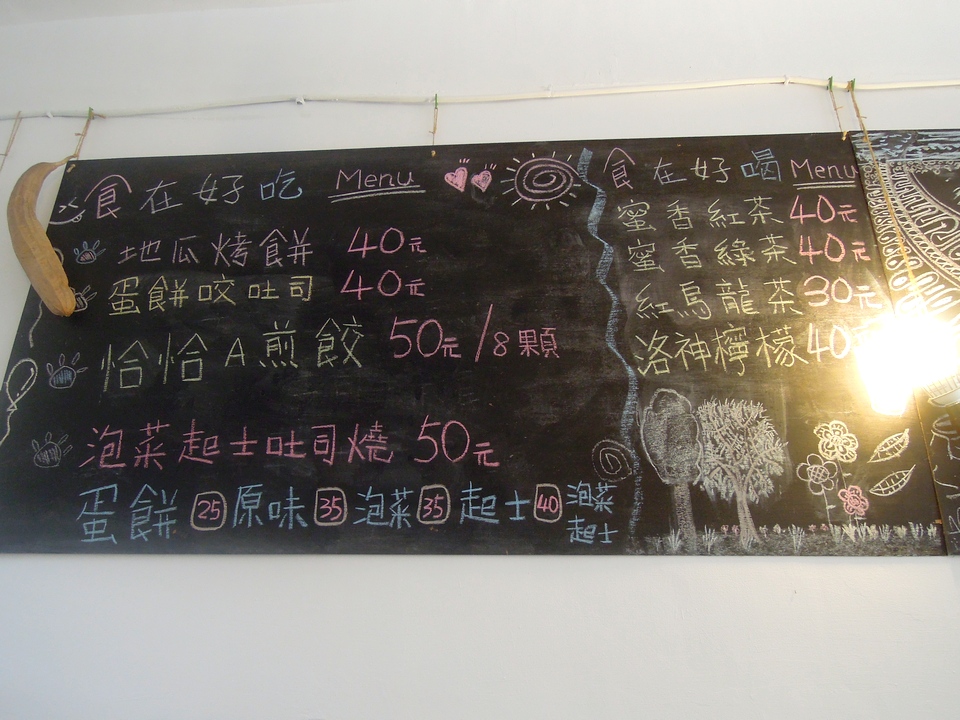 食在好吃 Menu
地瓜烤餅 40元
蛋餅咬吐司 40元
恰恰A煎餃 50元/8顆
泡菜起士吐司燒 50元
蛋餅 25 原味 35 泡菜 35 起士 40 泡菜起士
食在好喝 Menu
蜜香紅茶 40元
蜜香綠茶 40元
紅烏龍茶 30元
洛神檸檬 40